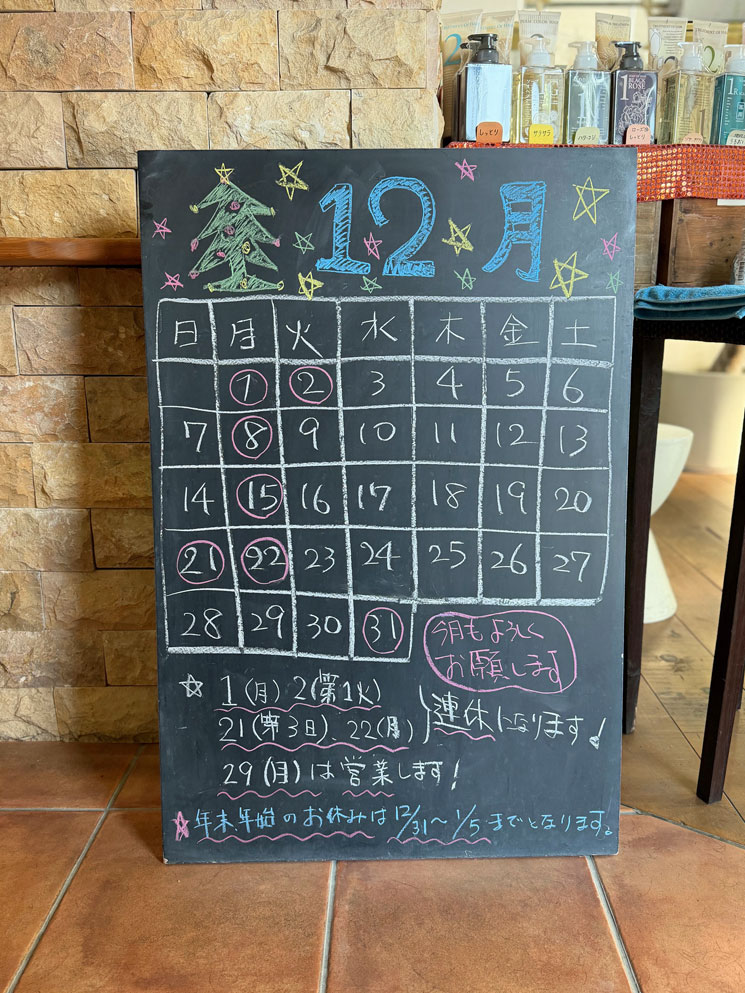 しっとり
サラサラ
1
12月
日 月 火 水 木 金 土
1 2 3 4 5 6
7 8 9 10 11 12 13
14 15 16 17 18 19 20
21 22 23 24 25 26 27
28 29 30 31
今月もよろしく
お願いします
☆ 1(月) 2(第1火)
21(第3日)、22(月)
連休になります!
29(月)は営業します!
☆年末年始のお休みは12/31~1/5までとなります。